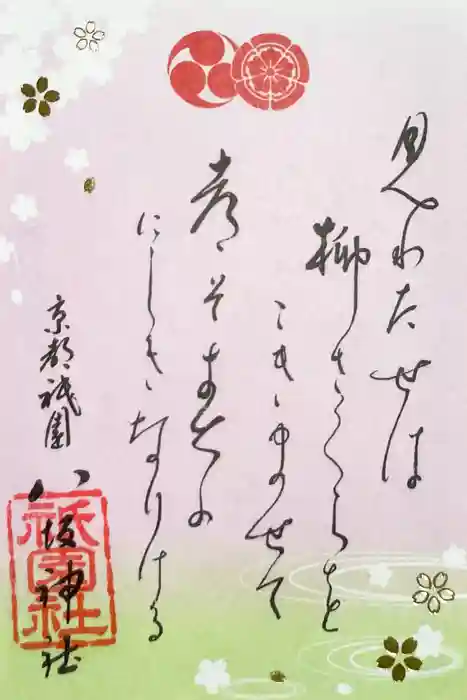 見わたせは
柳さくらを
こきませて
都そはるの
にしきなりける
京都祇園
八坂神社
祇園社